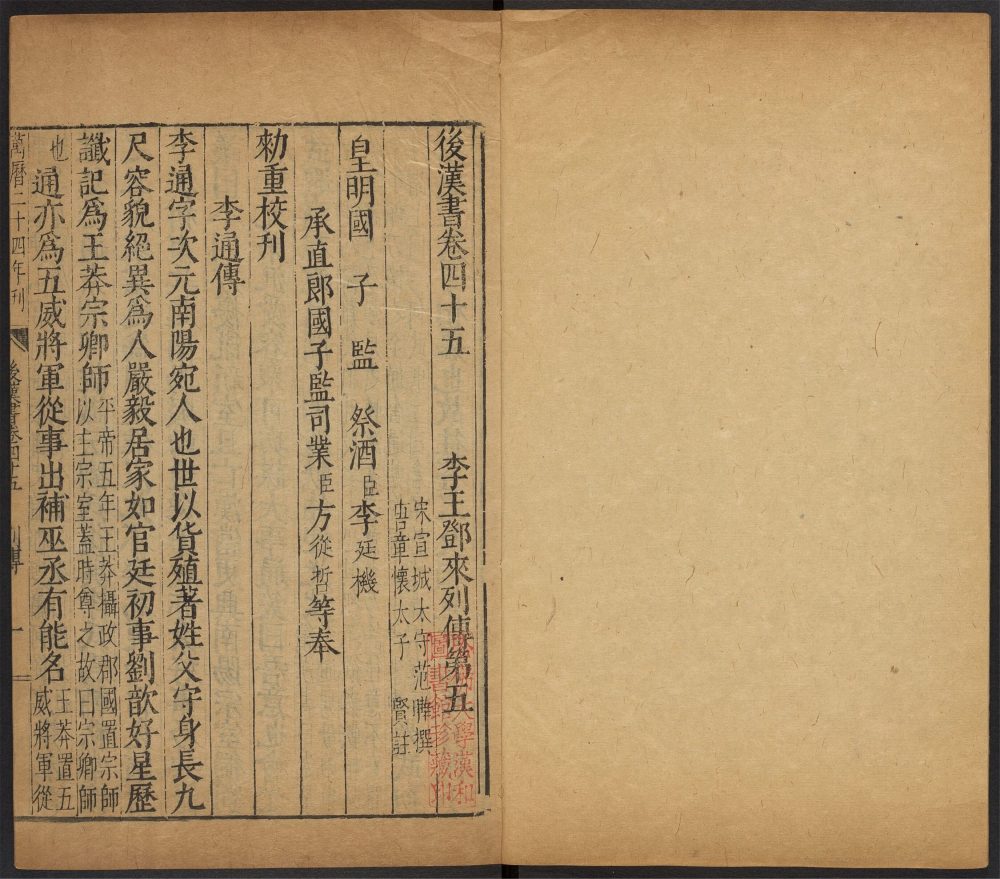 後漢書卷四十五 李王鄧來列傳第五
宋宣城太守范曄撰
唐章懷太子 賢註
皇明國子監祭酒臣李廷機
承直郎國子監司業臣方從哲等奉
勑重校刊
李通傳
李通字次元南陽宛人也世以貨殖著姓父守身長九
尺容貌絕異爲人嚴毅居家如官廷初事劉歆好星歷
讖記爲王莽宗卿師平帝五年王莽攝政郡國置宗師以主宗室蓋時尊之故曰宗卿師
也通亦爲五威將軍從事出補巫丞有能名王莽置五威將軍從
萬曆二十四年刊 後漢書卷四十五 列傳 一
大學漢和圖書館珍藏印